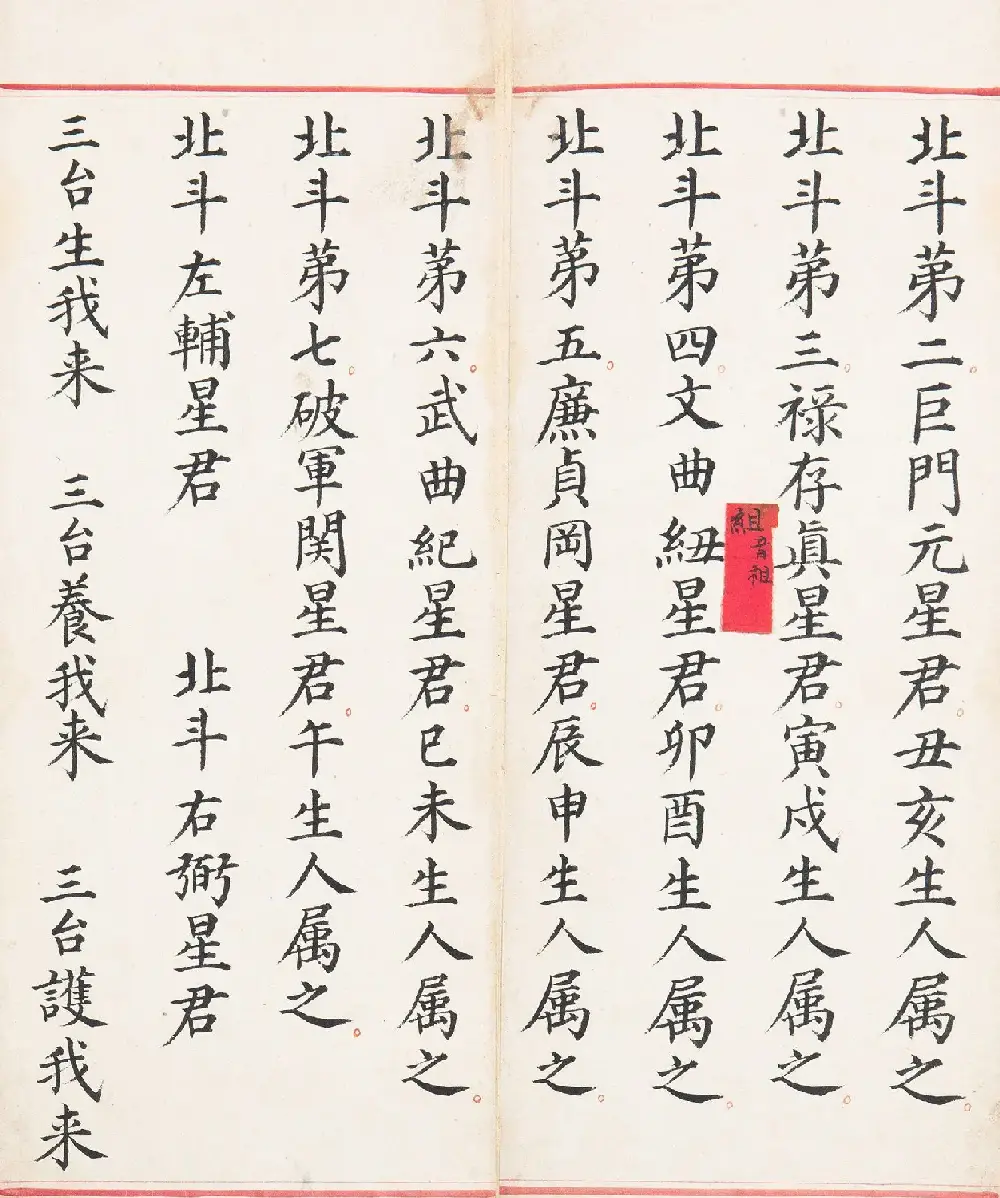 北斗第二巨門元星君丑亥生人属之
北斗第三禄存眞星君寅戌生人属之
組音祖
北斗第四文曲紐星君卯酉生人属之
北斗第五廉貞岡星君辰申生人属之
北斗第六武曲紀星君巳未生人属之
北斗第七破軍関星君午生人属之
北斗左輔星君 北斗右弼星君
三台生我来 三台養我来 三台護我来